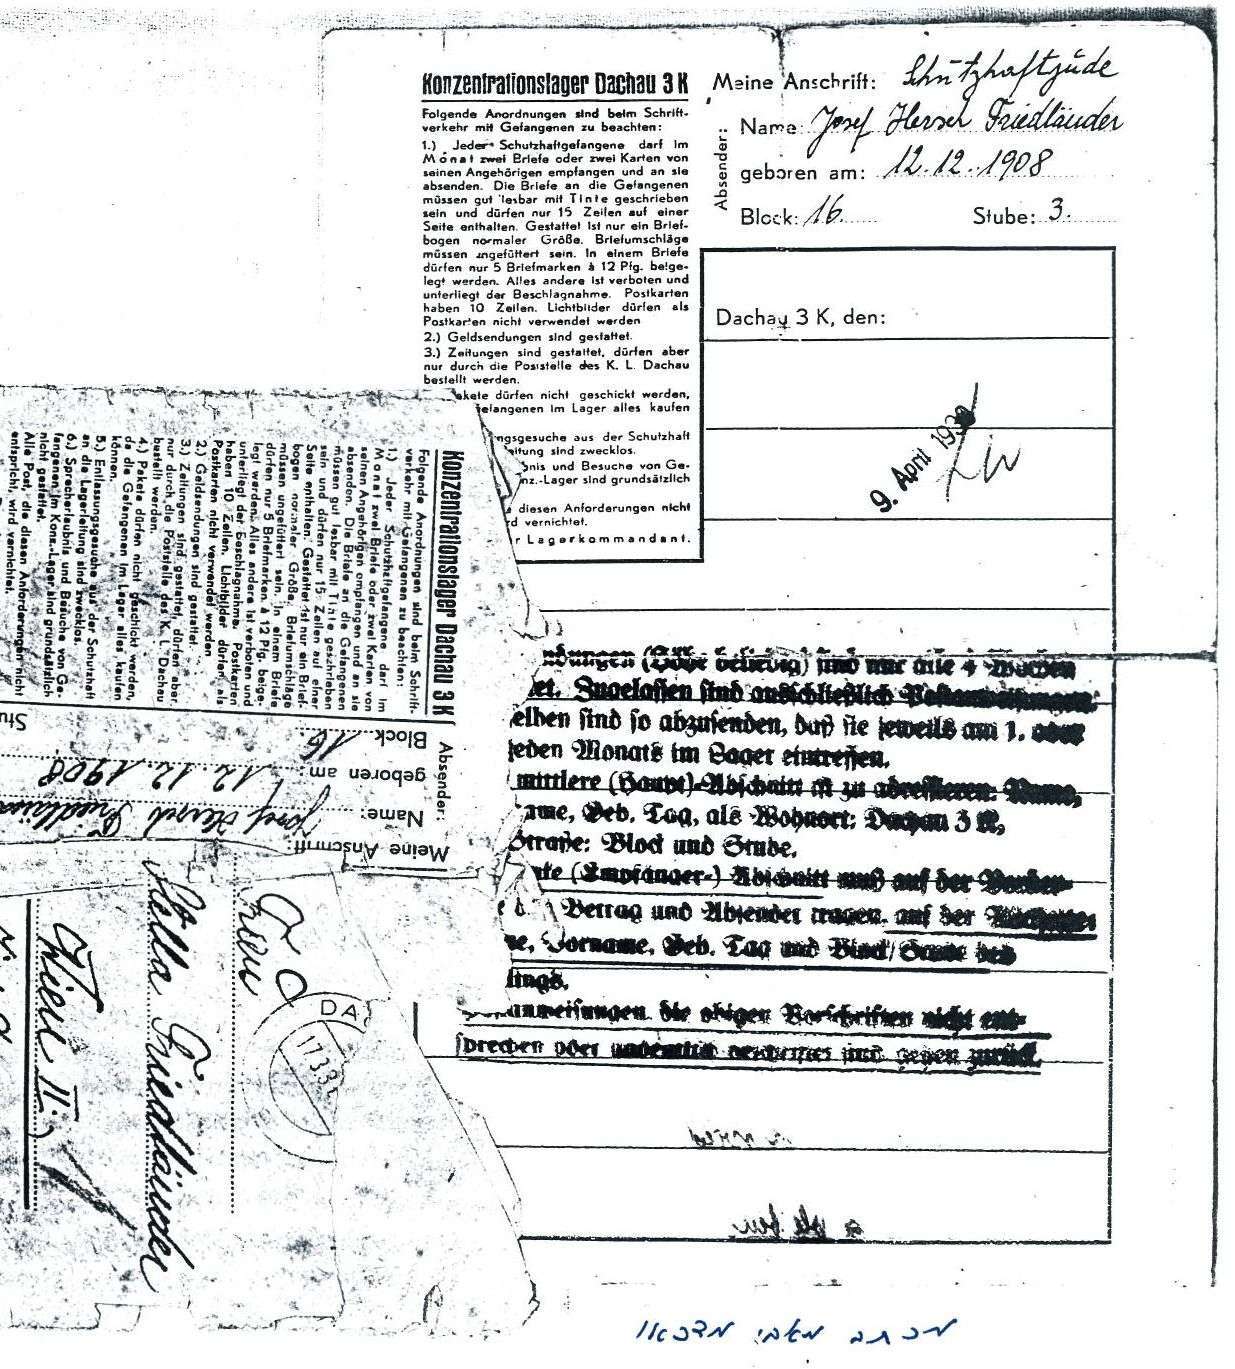 Konzentrationslager Dachau 3 K
Folgende Anordnungen sind beim Schrift-
verkehr mit Gefangenen zu beachten:
1.) Jeder Schutzhaftgefangene darf im
Monat zwei Briefe oder zwei Karten von
seinen Angehörigen empfangen und an sie
absenden. Die Briefe an die Gefangenen
müssen gut lesbar mit Tinte geschrieben
sein und dürfen nur 15 Zeilen auf einer
Seite enthalten. Gestattet ist nur ein Brief-
bogen normaler Größe. Briefumschläge
müssen ungefüttert sein. In einem Briefe
dürfen nur 5 Briefmarken à 12 Pfg. beige-
legt werden. Alles andere ist verboten und
unterliegt der Beschlagnahme. Postkarten
haben 10 Zeilen. Lichtbilder dürfen als
Postkarten nicht verwendet werden
2.) Geldsendungen sind gestattet.
3.) Zeitungen sind gestattet, dürfen aber
nur durch die Poststelle des K. L. Dachau
bestellt werden.
kete dürfen nicht geschickt werden,
efangenen im Lager alles kaufen
ngsgesuche aus der Schutzhaft
eitung sind zwecklos.
bnis und Besuche von Ge-
nz.-Lager sind grundsätzlich
e diesen Anforderungen nicht
rd vernichtet.
r Lagerkommandant.
Absender:
Meine Anschrift: Schutzhaftjude
Name: Josef Hersch Friedländer
geboren am: 12.12.1908
Block: 16. Stube: 3.
Dachau 3 K, den:
9. April 1939
ndungen (Höhe beliebig) sind nur alle 4 Wochen
et. Zugelassen sind ausschließlich Postanweisungen.
elben sind so abzusenden, daß sie jeweils am 1. oder
jeden Monats im Lager eintreffen.
mittlere (Haupt)-Abschnitt ist zu adressieren: Name,
ame, Geb. Tag, als Wohnort: Dachau 3 K,
Straße: Block und Stube.
nte (Empfänger-) Abschnitt muß auf der Vorder-
Betrag und Absender tragen, auf der
e, Vorname, Geb. Tag und Block/Stube des
lings.
anweisungen die obigen Vorschriften nicht ent-
sprechen oder undeutlich und gegen zurück.
Konzentrationslager Dachau 3 K
Folgende Anordnungen sind beim Schrift-
verkehr mit Gefangenen zu beachten:
1.) Jeder Schutzhaftgefangene darf im
Monat zwei Briefe oder zwei Karten von
seinen Angehörigen empfangen und an sie
absenden. Die Briefe an die Gefangenen
müssen gut lesbar mit Tinte geschrieben
sein und dürfen nur 15 Zeilen auf einer
Seite enthalten. Gestattet ist nur ein Brief-
bogen normaler Größe. Briefumschläge
müssen ungefüttert sein. In einem Briefe
dürfen nur 5 Briefmarken à 12 Pfg. beige-
legt werden. Alles andere ist verboten und
unterliegt der Beschlagnahme. Postkarten
haben 10 Zeilen. Lichtbilder dürfen als
Postkarten nicht verwendet werden
2.) Geldsendungen sind gestattet.
3.) Zeitungen sind gestattet, dürfen aber
nur durch die Poststelle des K. L. Dachau
bestellt werden.
4.) Pakete dürfen nicht geschickt werden,
da die Gefangenen im Lager alles kaufen
können.
5.) Entlassungsgesuche aus der Schutzhaft
an die Lagerleitung sind zwecklos.
6.) Sprecherlaubnis und Besuche von Ge-
fangenen im Konz.-Lager sind grundsätzlich
nicht gestattet.
Alle Post, die diesen Anforderungen nicht
entspricht, wird vernichtet.
Absender:
Meine Anschrift:
Name: Josef Hersch Friedländer
geboren am: 12.12.1908
Block 16 Stu
Frau
Stella Friedländer
Wien II.
DA
17.3.39
מכתב מאבי מדכאו